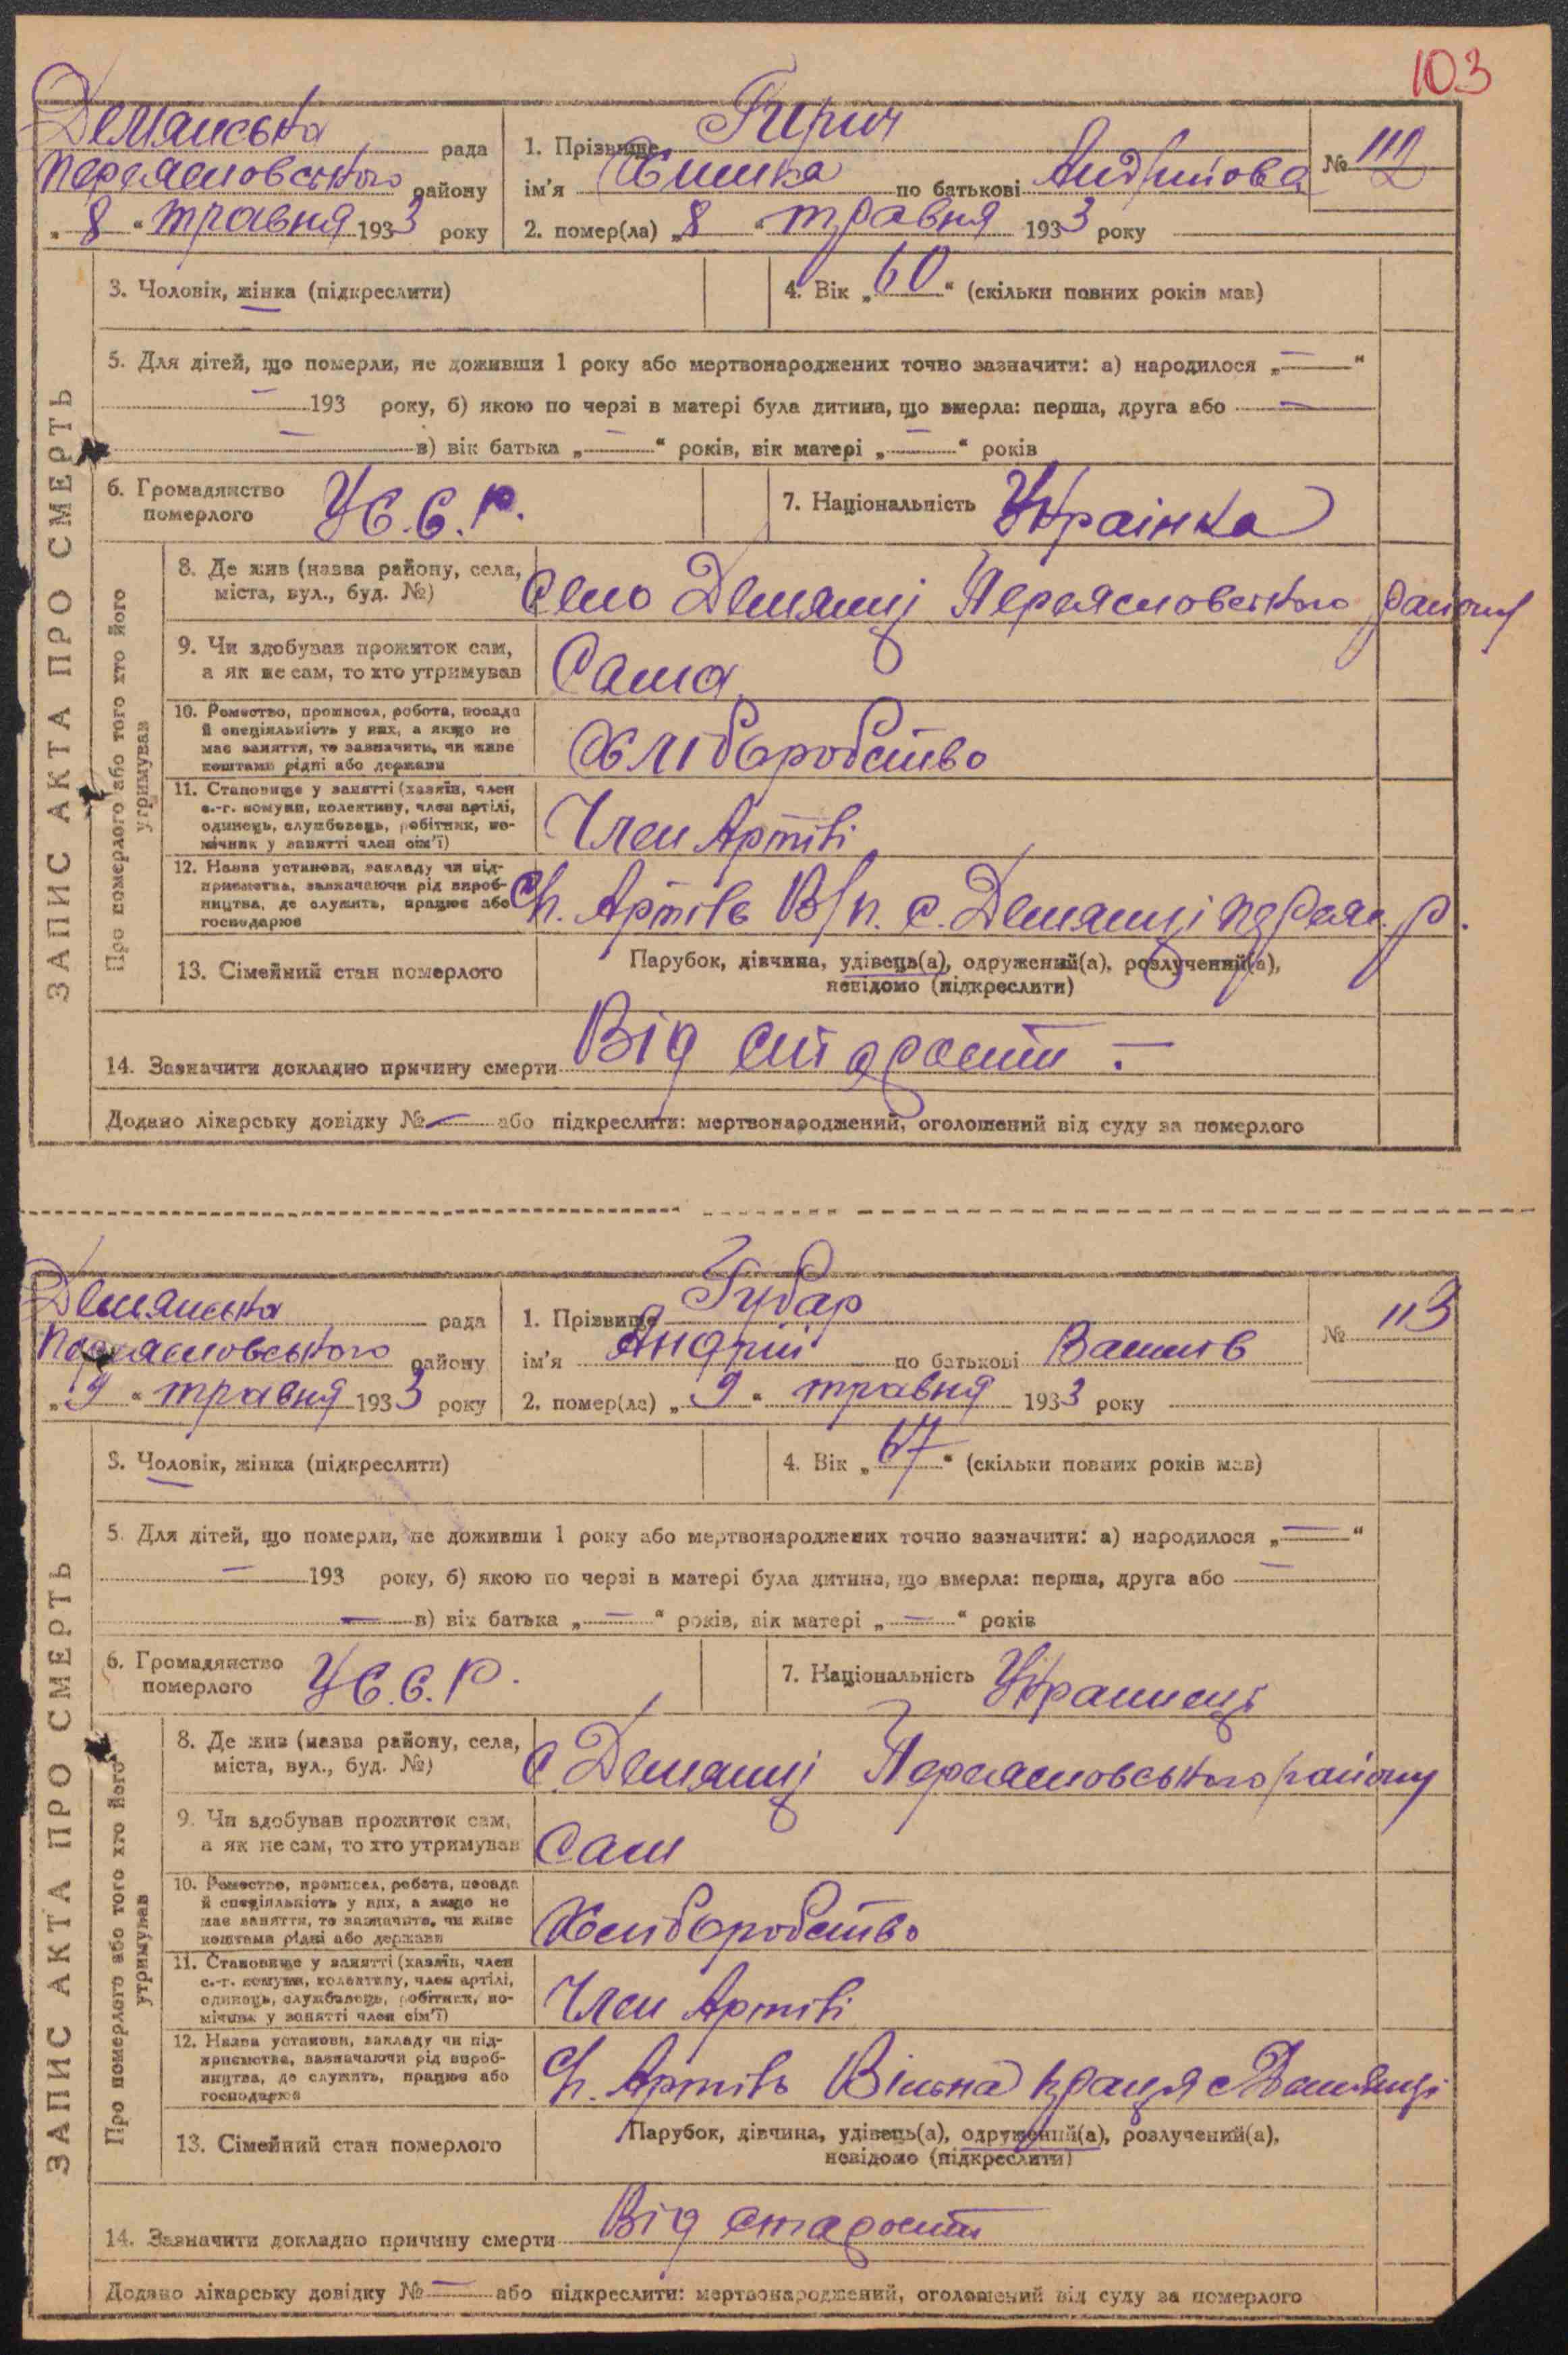 103
Демянська рада
Переяславського району
„8“ травня 1933 року
1. Прізвище
ім'я по батькові
2. помер(ла) „8“ травня 1933 року
№ 112
3. Чоловік, жінка (підкреслити)
4. Вік „60“ (скільки повних років мав)
5. Для дітей, що померли, не доживши 1 року або мертвонароджених точно зазначити: а) народилося „—“
— 193 року, б) якою по черзі в матері була дитина, що вмерла: перша, друга або —
— в) вік батька „—“ років, вік матері „—“ років
6. Громадянство
померлого
У.С.С.Р.
7. Національність Українка
ЗАПИС АКТА ПРО СМЕРТЬ
Про померлого або того хто його
утримував
8. Де жив (назва району, села,
міста, вул., буд. №)
Село Демянці Переясловського району
9. Чи здобував прожиток сам,
а як не сам, то хто утримував
Сама
10. Ремество, промисел, робота, посада
й спеціяльність у них, а якщо не
має заняття, то зазначити, чи живе
коштами рідні або держави
Хліборобство
11. Становище у занятті (хазяїн, член
с.-г. комуни, колективу, член артілі,
одинець, службовець, робітник, по-
мічник у занятті член сім'ї)
Член Артілі
12. Назва установи, закладу чи під-
приємства, зазначаючи рід вироб-
ництва, де служить, працює або
господарює
Артіль В/п. с. Демянці Переяс. р.
13. Сімейний стан померлого
Парубок, дівчина, удівець(а), одружений(а), розлучений(а),
невідомо (підкреслити)
14. Зазначити докладно причину смерти Від старости —
Додано лікарську довідку № — або підкреслити: мертвонароджений, оголошений від суду за померлого
Демянська рада
Переясловського району
„9“ травня 1933 року
1. Прізвище Губар
ім'я Андрій по батькові Васильов
2. помер(ла) „9“ травня 1933 року
№ 113
3. Чоловік, жінка (підкреслити)
4. Вік „67“ (скільки повних років мав)
5. Для дітей, що померли, не доживши 1 року або мертвонароджених точно зазначити: а) народилося „—“
— 193 року, б) якою по черзі в матері була дитина, що вмерла: перша, друга або —
— в) вік батька „—“ років, вік матері „—“ років
6. Громадянство
померлого
У.С.С.Р.
7. Національність Украинець
ЗАПИС АКТА ПРО СМЕРТЬ
Про померлого або того хто його
утримував
8. Де жив (назва району, села,
міста, вул., буд. №)
с Демянці Переясловського району
9. Чи здобував прожиток сам,
а як не сам, то хто утримував
Сам
10. Ремество, промисел, робота, посада
й спеціяльність у них, а якщо не
має заняття, то зазначити, чи живе
коштами рідні або держави
Хлиборобство
11. Становище у занятті (хазяїн, член
с.-г. комуни, колективу, член артілі,
одинець, службовець, робітник, по-
мічник у занятті член сім'ї)
Член Артілі
12. Назва установи, закладу чи під-
приємства, зазначаючи рід вироб-
ництва, де служить, працює або
господарює
Артіль Вільна праця с Демянці
13. Сімейний стан померлого
Парубок, дівчина, удівець(а), одружений(а), розлучений(а),
невідомо (підкреслити)
14. Зазначити докладно причину смерти Від старости
Додано лікарську довідку № — або підкреслити: мертвонароджений, оголошений від суду за померлого